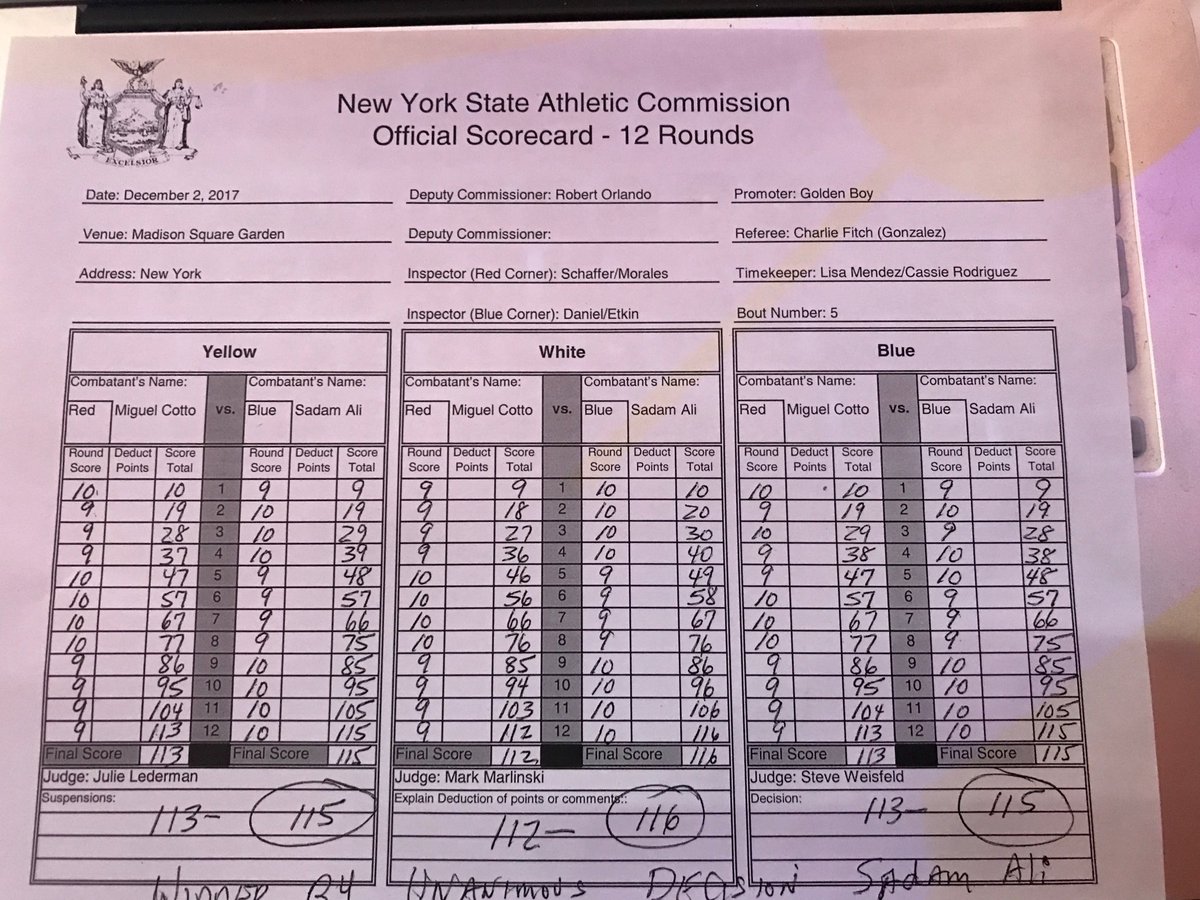 EXCELSIOR
New York State Athletic Commission
Official Scorecard - 12 Rounds
Date: December 2, 2017 Deputy Commissioner: Robert Orlando Promoter: Golden Boy
Venue: Madison Square Garden Deputy Commissioner: Referee: Charlie Fitch (Gonzalez)
Address: New York Inspector (Red Corner): Schaffer/Morales Timekeeper: Lisa Mendez/Cassie Rodriguez
Inspector (Blue Corner): Daniel/Etkin Bout Number: 5
Yellow White Blue
Combatant's Name: Combatant's Name: Combatant's Name: Combatant's Name: Combatant's Name: Combatant's Name:
Red Miguel Cotto vs. Blue Sadam Ali Red Miguel Cotto vs. Blue Sadam Ali Red Miguel Cotto vs. Blue Sadam Ali
Round Deduct Score Round Deduct Score Round Deduct Score Round Deduct Score Round Deduct Score Round Deduct Score
Score Points Total Score Points Total Score Points Total Score Points Total Score Points Total Score Points Total
10 10 1 9 9 9 9 1 10 10 10 10 1 9 9
9 19 2 10 19 9 18 2 10 20 9 19 2 10 19
9 28 3 10 29 9 27 3 10 30 10 29 3 9 28
9 37 4 10 39 9 36 4 10 40 9 38 4 10 38
10 47 5 9 48 10 46 5 9 49 9 47 5 10 48
10 57 6 9 57 10 56 6 9 58 10 57 6 9 57
10 67 7 9 66 10 66 7 9 67 10 67 7 9 66
10 77 8 9 75 10 76 8 9 76 10 77 8 9 75
9 86 9 10 85 9 85 9 10 86 9 86 9 10 85
9 95 10 10 95 9 94 10 10 96 9 95 10 10 95
9 104 11 10 105 9 103 11 10 106 9 104 11 10 105
9 113 12 10 115 9 112 12 10 116 9 113 12 10 115
Final Score 113 Final Score 115 Final Score 112 Final Score 116 Final Score 113 Final Score 115
Judge: Julie Lederman Judge: Mark Marlinski Judge: Steve Weisfeld
Suspensions: Explain Deduction of points or comments:: Decision:
113- 115 112- 116 113- 115
WINNER BY UNANIMOUS DECISION SADAM Ali